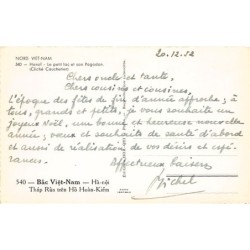 NORD VIET-NAM
540 — Hanoï - Le petit lac et son Pagodon
(Cliché Cauchetier)
20.12.52
Chers oncle et tante,
Chers cousins et cousines,
L'époque des fêtes de fin d'année approche ; à
tous, grands et petits, je vous souhaite un
joyeux Noël, une bonne et heureuse nouvelle
année. Je vous souhaite de santé d'abord
et aussi de réalisation de vos désirs et espé-
rances.
Affectueux baisers
Michel
540 — Bắc Việt-Nam — Hà-nội
Tháp Rùa trên Hồ Hoàn-Kiếm